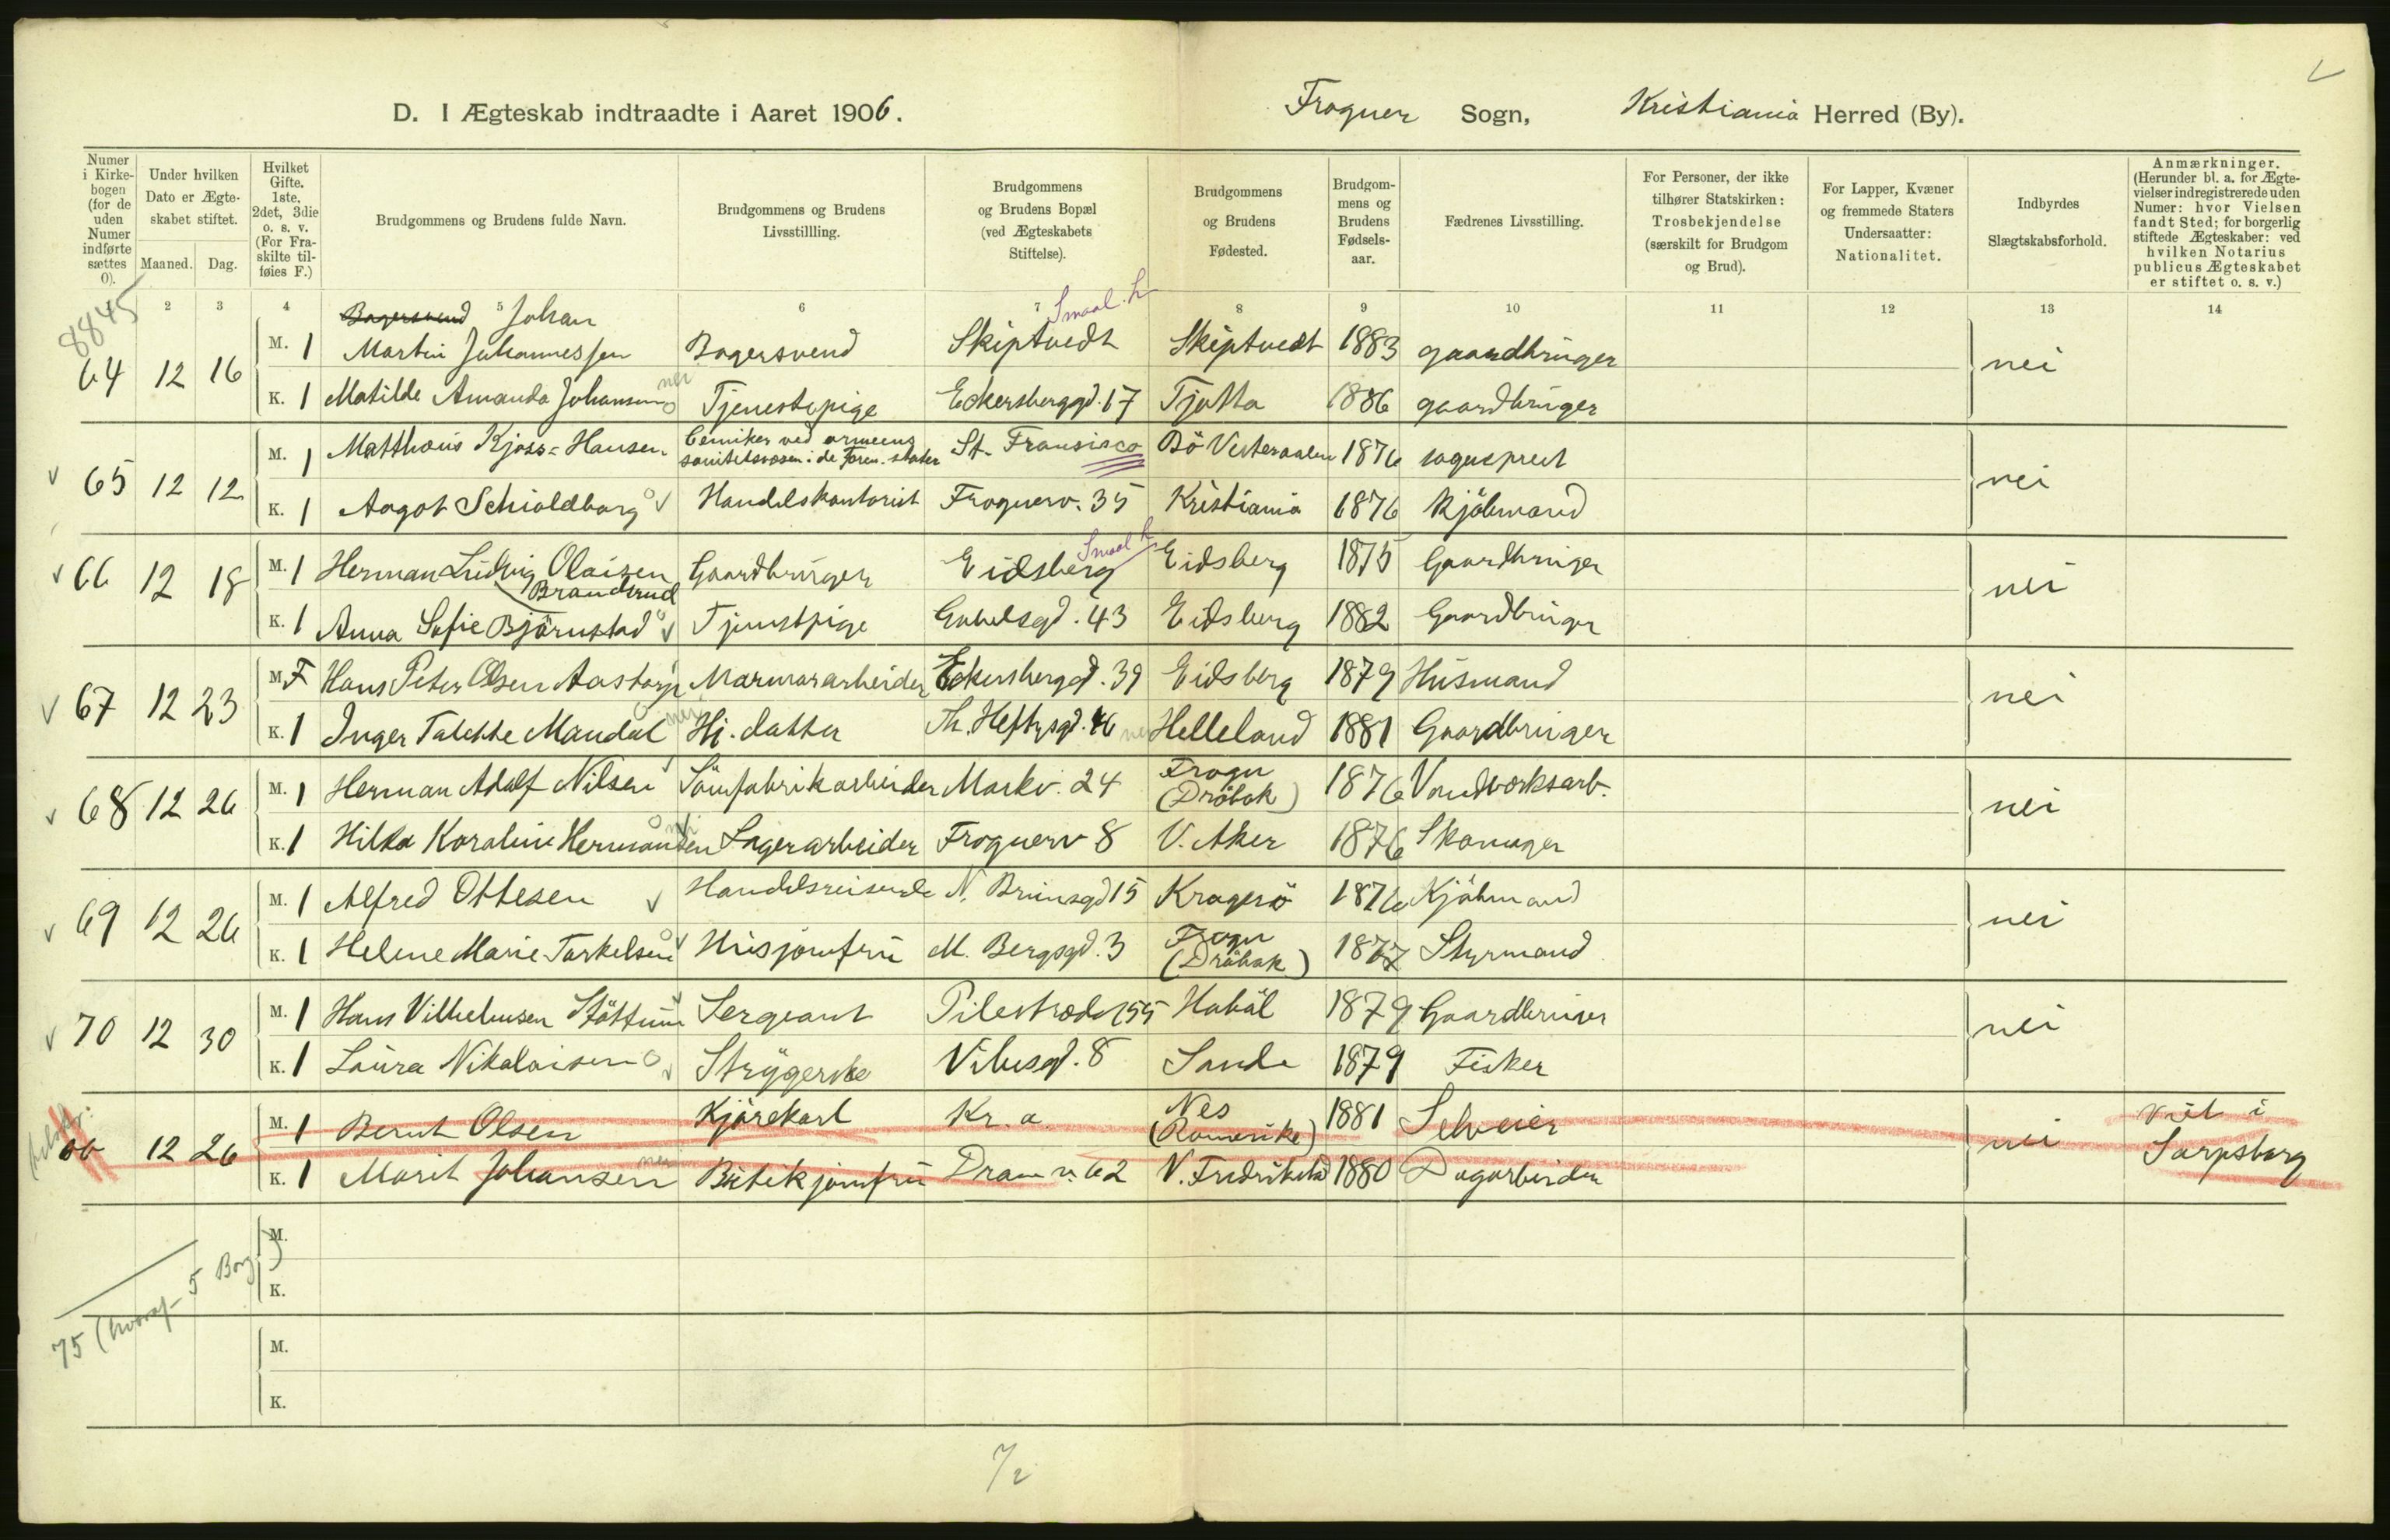 D. I Ægteskab indtraadte i Aaret 1906.
Frogner Sogn, Kristiania Herred (By).
Numer i Kirkebogen (for de uden Numer indførte sættes 0).
Under hvilken Dato er Ægteskabet stiftet.
Maaned. Dag.
Hvilket Gifte. 1ste, 2det, 3die o. s. v. (For Fraskilte tilføies F.)
Brudgommens og Brudens fulde Navn.
Brudgommens og Brudens Livsstillling.
Brudgommens og Brudens Bopæl (ved Ægteskabets Stiftelse).
Brudgommens og Brudens Fødested.
Brudgommens og Brudens Fødselsaar.
Fædrenes Livsstilling.
For Personer, der ikke tilhører Statskirken: Trosbekjendelse (særskilt for Brudgom og Brud).
For Lapper, Kvæner og fremmede Staters Undersaatter: Nationalitet.
Indbyrdes Slægtskabsforhold.
Anmærkninger. (Herunder bl. a. for Ægtevielser indregistrerede uden Numer: hvor Vielsen fandt Sted; for borgerlig stiftede Ægteskaber: ved hvilken Notarius publicus Ægteskabet er stiftet o. s. v.)
2 3 4 5 6 7 8 9 10 11 12 13 14
8845
Bagersvend Johan Smaal. L
64 12 16 M. 1 Martin Johannessen Bagersvend Skiptvedt Skiptvedt 1883 gaardbruger nei
K. 1 Matilde Amanda Johansen nei Tjenestepige Eckersberggd. 17 Tjøtta 1886 gaardbruger
65 12 12 M. 1 Matthæus Kjoss-Hansen Cemiker ved armeens sanitetsvæsen i de Foren. stater St. Fransisco Bö Vesteraalen 1876 sogneprest nei
K. 1 Aagot Schioldborg Handelskontorist Frognerv. 35 Kristiania 1876 Kjöbmand
66 12 18 M. 1 Herman Ludvig Olaisen Brandsrud Gaardbruger Eidsberg Smaal L Eidsberg 1875 Gaardbruger nei
K. 1 Anna Sofie Björnstad Tjenestpige Gabelsgd. 43 Eidsberg 1882 Gaardbruger
67 12 23 M. F Hans Peter Olsen Aastorp Marmorarbeider Eckersbergd. 39 Eidsberg 1879 Husmand nei
K. 1 Inger Talette Mandal nei Hj. datter Th. Heftysgd. 46 Helleland 1881 Gaardbruger
68 12 26 M. 1 Herman Adolf Nilsen Sömfabrikarbeider Markv. 24 Frogn (Dröbak) 1876 Vandværksarb. nei
K. 1 Hilda Karoline Hermansen Lagerarbeider Frognerv 8 V. Aker 1876 Skomager
69 12 26 M. 1 Alfred Ottesen Handelsreisende N. Brunsgd 15 Kragerö 1876 Kjöbmand nei
K. 1 Helene Marie Torkelsen Husjomfru M. Bergsgd. 3 Frogn (Dröbak) 1877 Styrmand
70 12 30 M. 1 Hans Vilhelmsen Støttum Sergeant Pilestrædet 55 Haböl 1879 Gaardbruger nei
K. 1 Laura Nikolaisen Strygerske Vibesgd. 8 Sande 1879 Fisker
12 26 M. 1 Bernt Olsen Kjørekarl Kr.a. Nes (Romerike) 1881 Selveier nei Viet i Sarpsborg
K. 1 Marit Johansen nei Butikjomfru Dram v. 62 V. Fredrikstad 1880 Dagarbeider
M.
K.
75 (hvoraf 5 Borg.)
M.
K.
7/2